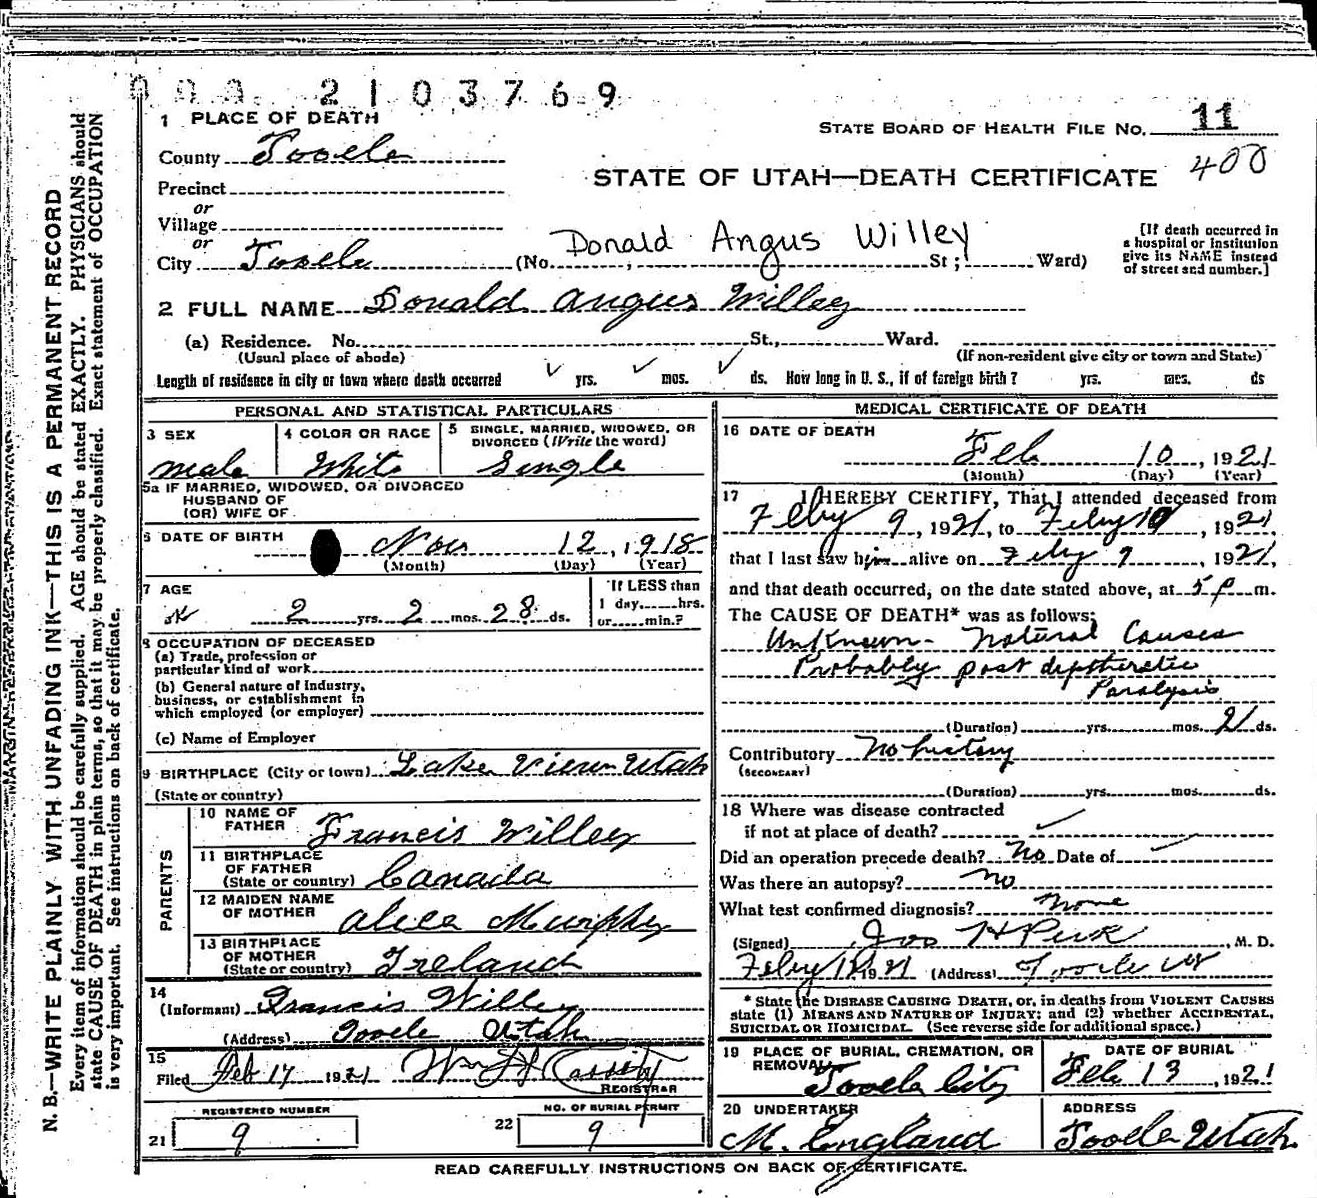 2103769
1 PLACE OF DEATH
STATE BOARD OF HEALTH FILE NO. 11
County Tooele
400
STATE OF UTAH—DEATH CERTIFICATE
Precinct
or
Village
or
City Tooele (No. Donald Angus Willey St; Ward)
[If death occurred in
a hospital or institution
give its NAME instead
of street and number.]
2 FULL NAME Donald Angus Willey
(a) Residence. No. St., Ward.
(Usual place of abode) (If non-resident give city or town and State)
Length of residence in city or town where death occurred yrs. mos. ds. How long in U. S., if of foreign birth? yrs. mos. ds
PERSONAL AND STATISTICAL PARTICULARS
3 SEX
male
4 COLOR OR RACE
White
5 SINGLE, MARRIED, WIDOWED, OR
DIVORCED (Write the word)
Single
5a IF MARRIED, WIDOWED, OR DIVORCED
HUSBAND OF
(OR) WIFE OF
6 DATE OF BIRTH Nov 12, 1918
(Month) (Day) (Year)
7 AGE
2 yrs. 2 mos. 28 ds.
If LESS than
1 day, hrs.
or min.?
8 OCCUPATION OF DECEASED
(a) Trade, profession or
particular kind of work
(b) General nature of industry,
business, or establishment in
which employed (or employer)
(c) Name of Employer
9 BIRTHPLACE (City or town) Lake View Utah
(State or country)
PARENTS
10 NAME OF
FATHER Francis Willey
11 BIRTHPLACE
OF FATHER
(State or country) Canada
12 MAIDEN NAME
OF MOTHER Alice Murphy
13 BIRTHPLACE
OF MOTHER
(State or country) Ireland
14
(Informant) Francis Willey
(Address) Tooele Utah
15
Filed Feb 17 1921 Wm H Cassity
REGISTRAR
REGISTERED NUMBER
21 9
NO. OF BURIAL PERMIT
22 9
MEDICAL CERTIFICATE OF DEATH
16 DATE OF DEATH
Feb 10, 1921
(Month) (Day) (Year)
17 I HEREBY CERTIFY, That I attended deceased from
Feby 9, 1921, to Feby 10, 1921
that I last saw him alive on Feby 9, 1921,
and that death occurred, on the date stated above, at 5 p m.
The CAUSE OF DEATH* was as follows:
Unknown - Natural Causes
Probably post diptheretic
Paralysis
(Duration) yrs. mos. 21 ds.
Contributory No history
(SECONDARY)
(Duration) yrs. mos. ds.
18 Where was disease contracted
if not at place of death?
Did an operation precede death? No Date of
Was there an autopsy? no
What test confirmed diagnosis? None
(Signed) Jos H Peck, M. D.
Feby 1921 (Address) Tooele Ut
* State the DISEASE CAUSING DEATH, or, in deaths from VIOLENT CAUSES
state (1) MEANS AND NATURE OF INJURY; and (2) whether ACCIDENTAL,
SUICIDAL OR HOMICIDAL. (See reverse side for additional space.)
19 PLACE OF BURIAL, CREMATION, OR
REMOVAL
Tooele City
DATE OF BURIAL
Feb 13, 1921
20 UNDERTAKER
M. England
ADDRESS
Tooele Utah
READ CAREFULLY INSTRUCTIONS ON BACK OF CERTIFICATE.
N. B.—WRITE PLAINLY WITH UNFADING INK—THIS IS A PERMANENT RECORD
Every item of information should be carefully supplied. AGE should be stated EXACTLY. PHYSICIANS should
state CAUSE OF DEATH in plain terms, so that it may be properly classified. Exact statement of OCCUPATION
is very important. See instructions on back of certificate.